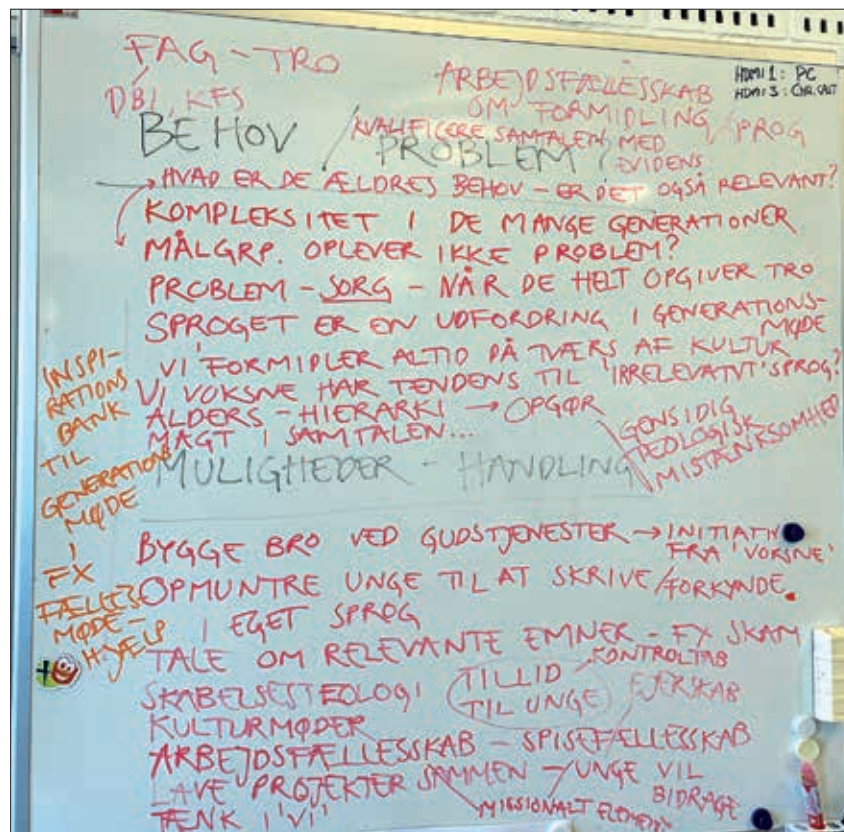 FAG - TRO
DBI, KFS
ARBEJDSFÆLLESSKAB
OM FORMIDLING / SPROG
HDMI 1: PC
HDMI 3:
BEHOV / PROBLEM?
KVALIFICERE SAMTALEN MED
EVIDENS
HVAD ER DE ÆLDRES BEHOV - ER DET OGSÅ RELEVANT?
KOMPLEKSITET I DE MANGE GENERATIONER
MÅLGRP. OPLEVER IKKE PROBLEM?
PROBLEM - SORG - NÅR DE HELT OPGIVER TRO
SPROGET ER EN UDFORDRING I GENERATIONS-
MØDE
VI FORMIDLER ALTID PÅ TVÆRS AF KULTUR
VI VOKSNE HAR TENDENS TIL 'IRRELEVANT' SPROG?
ALDERS - HIERARKI → OPGØR
MAGT I SAMTALEN...
GENSIDIG
TEOLOGISK
MISTÆNKSOMHED
MULIGHEDER - HANDLING
INSPI-
RATIONS
BANK
TIL
GENERATIONS
MØDE
I
FX
FÆLLES
MØDE-
HJÆLP
BYGGE BRO VED GUDSTJENESTER → INITIATIV
FRA 'VOKSNE'
OPMUNTRE UNGE TIL AT SKRIVE/FORKYNDE.
I EGET SPROG
TALE OM RELEVANTE EMNER - FX SKAM
SKABELSESTEOLOGI
TILLID
TIL UNGE
KONTROLTAB
EJERSKAB
KULTURMØDER
ARBEJDSFÆLLESSKAB - SPISEFÆLLESSKAB
LAVE PROJEKTER SAMMEN - UNGE VIL
BIDRAGE
MISSIONALT ELEMENT
TÆNK I 'VI'